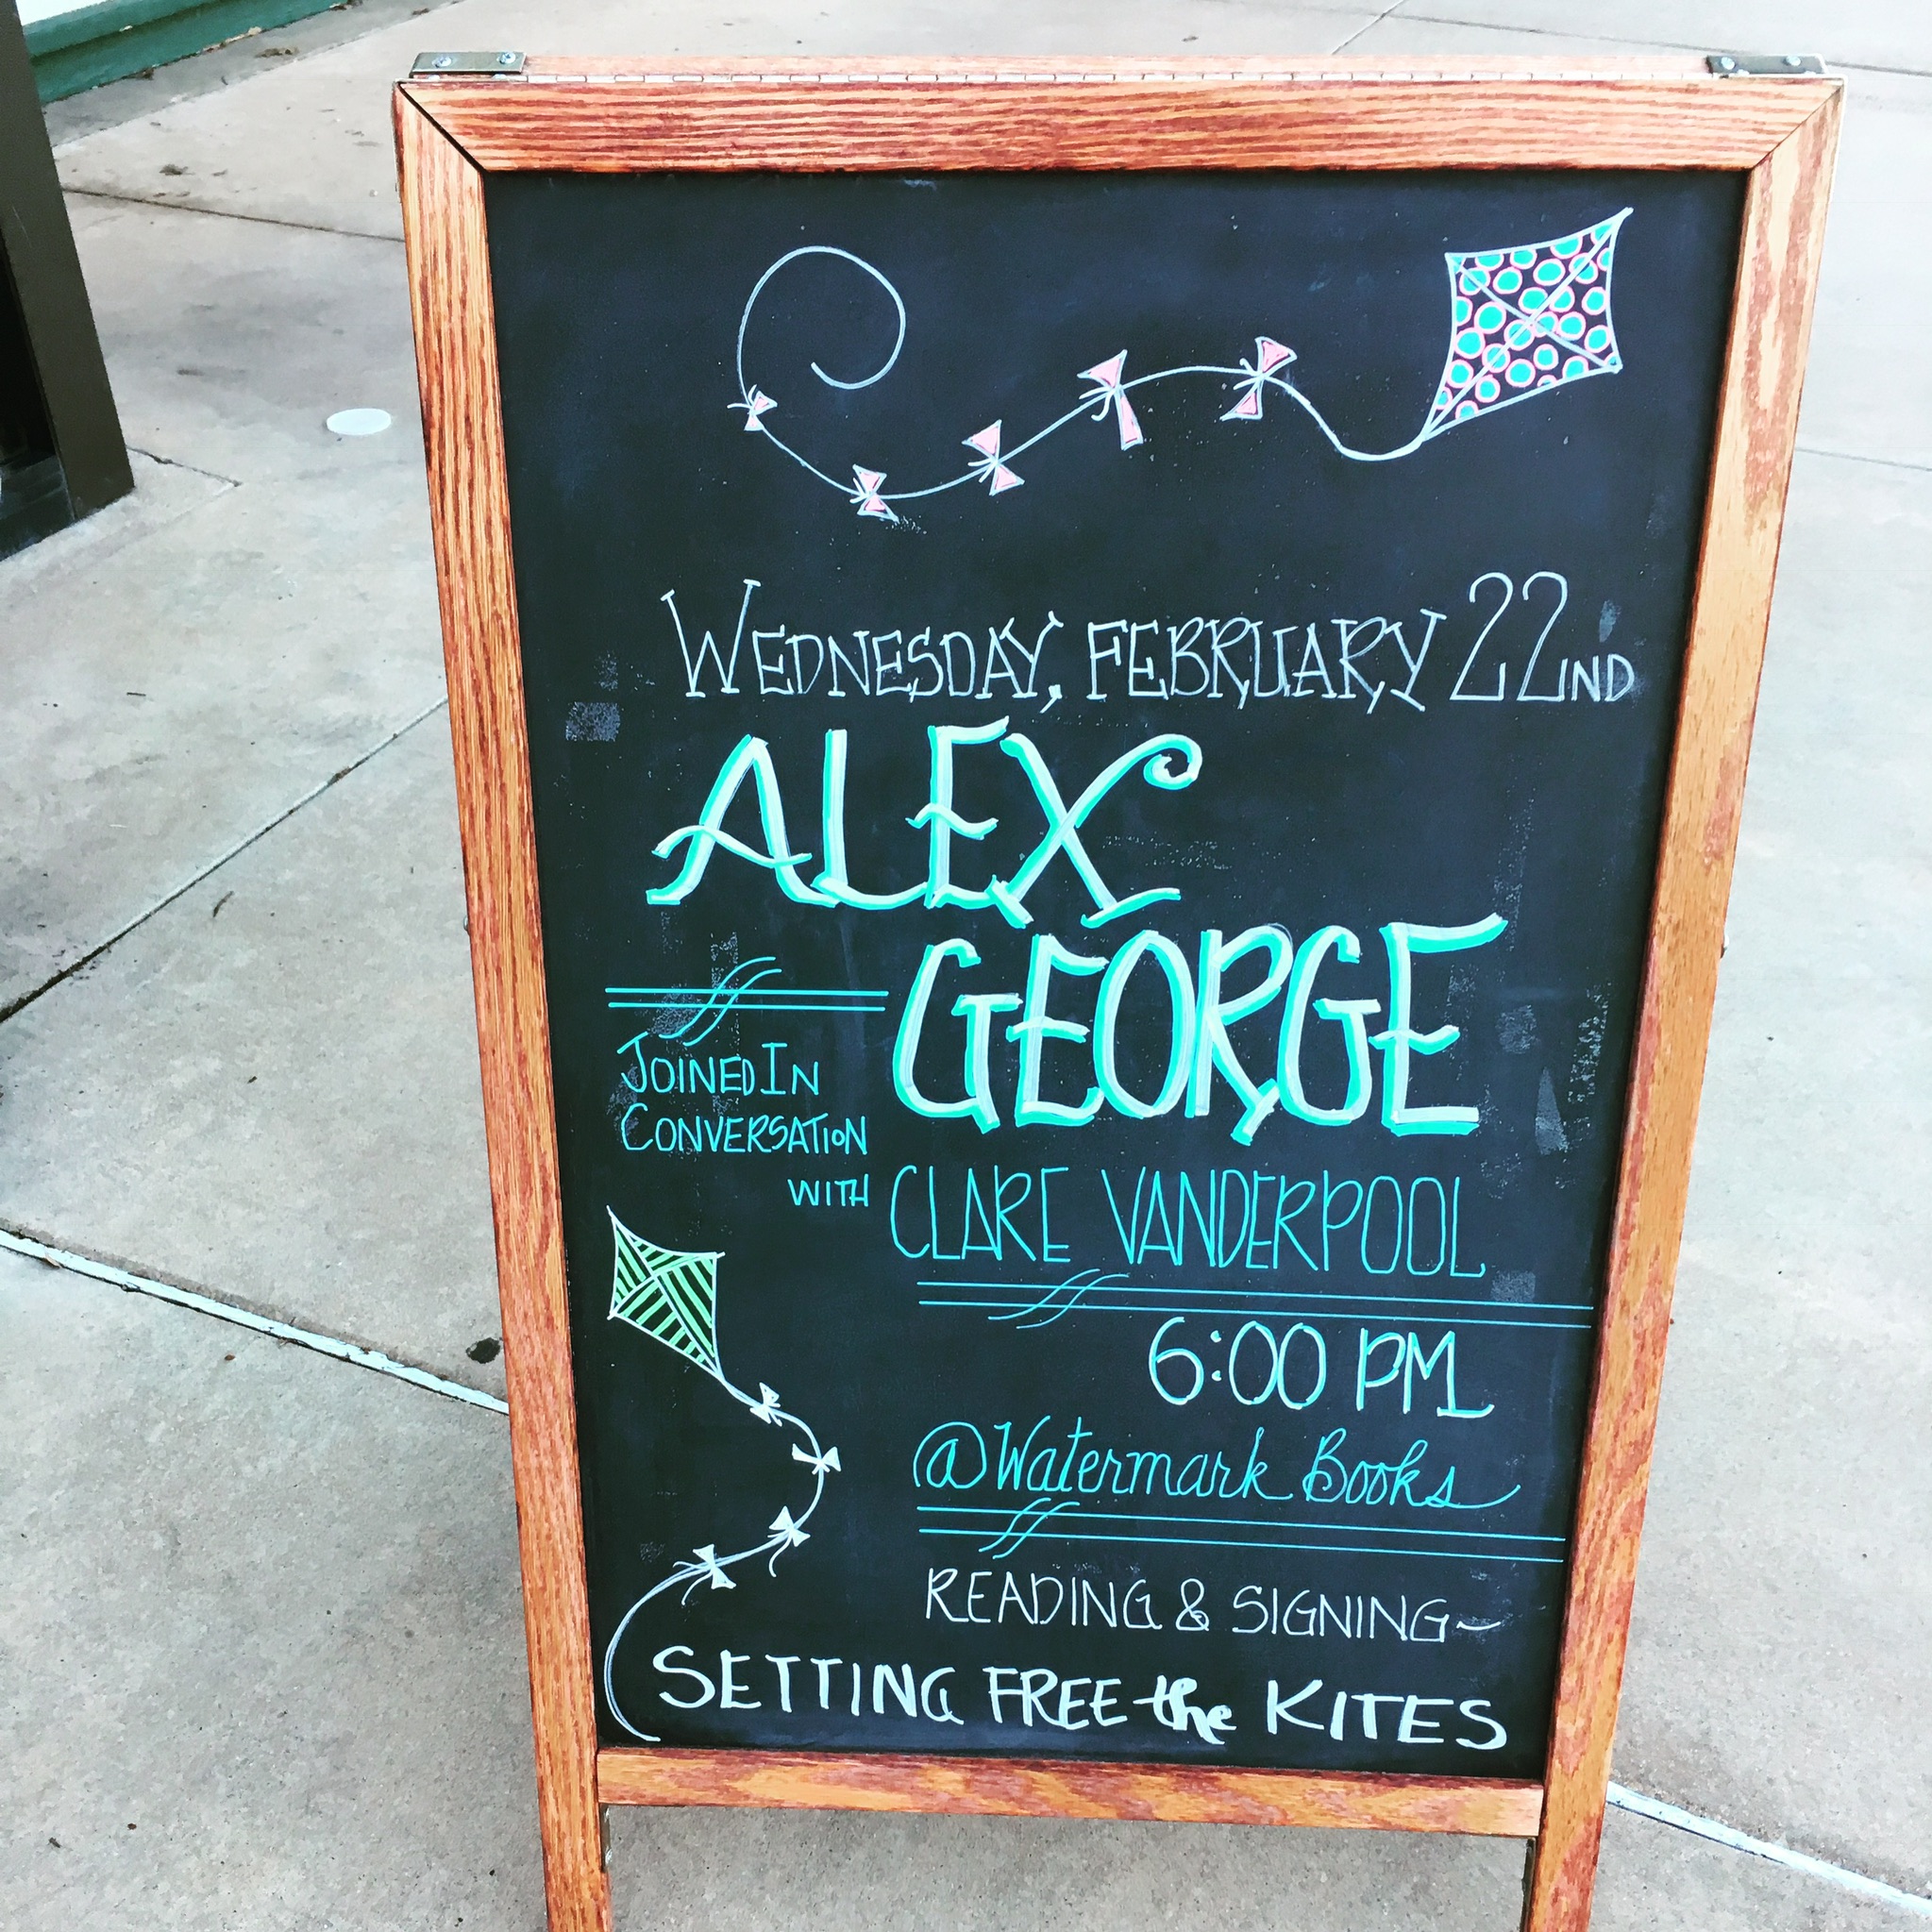 WEDNESDAY, FEBRUARY 22ND
ALEX
GEORGE
JOINED IN
CONVERSATION
WITH CLARE VANDERPOOL
6:00 PM
@Watermark Books
READING & SIGNING~
SETTING FREE the KITES